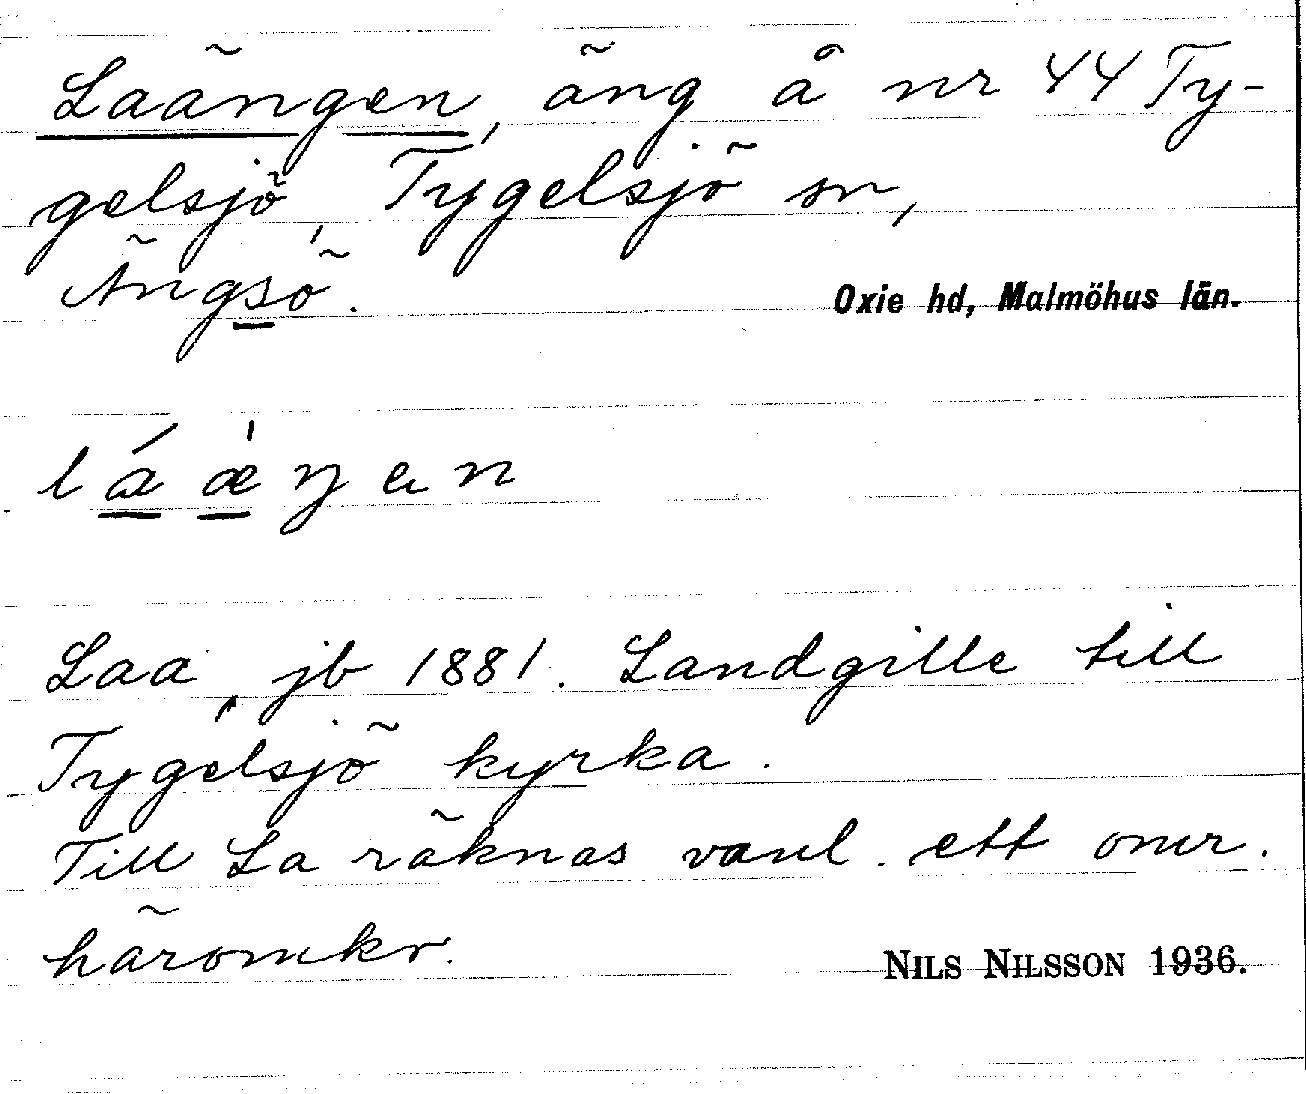 Laängen, äng å nr 44 Ty-
gelsjö, Tygelsjö sn,
Ängsö.
Oxie hd, Malmöhus län.
láæ̀ŋen
Laa, jb 1881. Landgille till
Tygelsjö kyrka.
Till La räknas vanl. ett omr.
häromkr.
NILS NILSSON 1936.